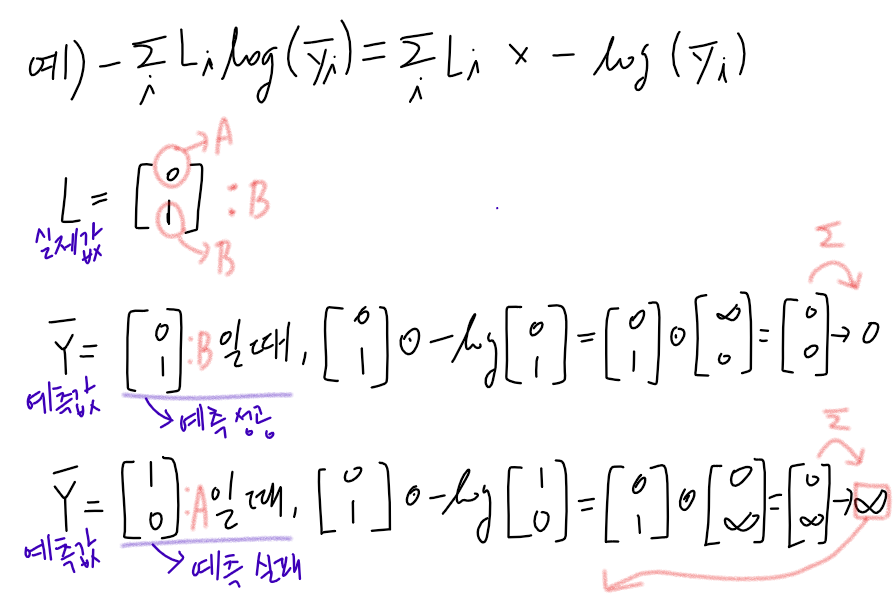 예) - Σ_i L_i log(ȳ_i) = Σ_i L_i × - log(ȳ_i)
A
L = [0 1] : B
실제값
B
Σ
Ȳ = [0 1] :B 일 때, [0 1] ⊙ -log [0 1] = [0 1] ⊙ [∞ 0] = [0 0] → 0
예측값
예측 성공
Σ
Ȳ = [1 0] :A 일 때, [0 1] ⊙ -log [1 0] = [0 1] ⊙ [0 ∞] = [0 ∞] → ∞
예측값
예측 실패